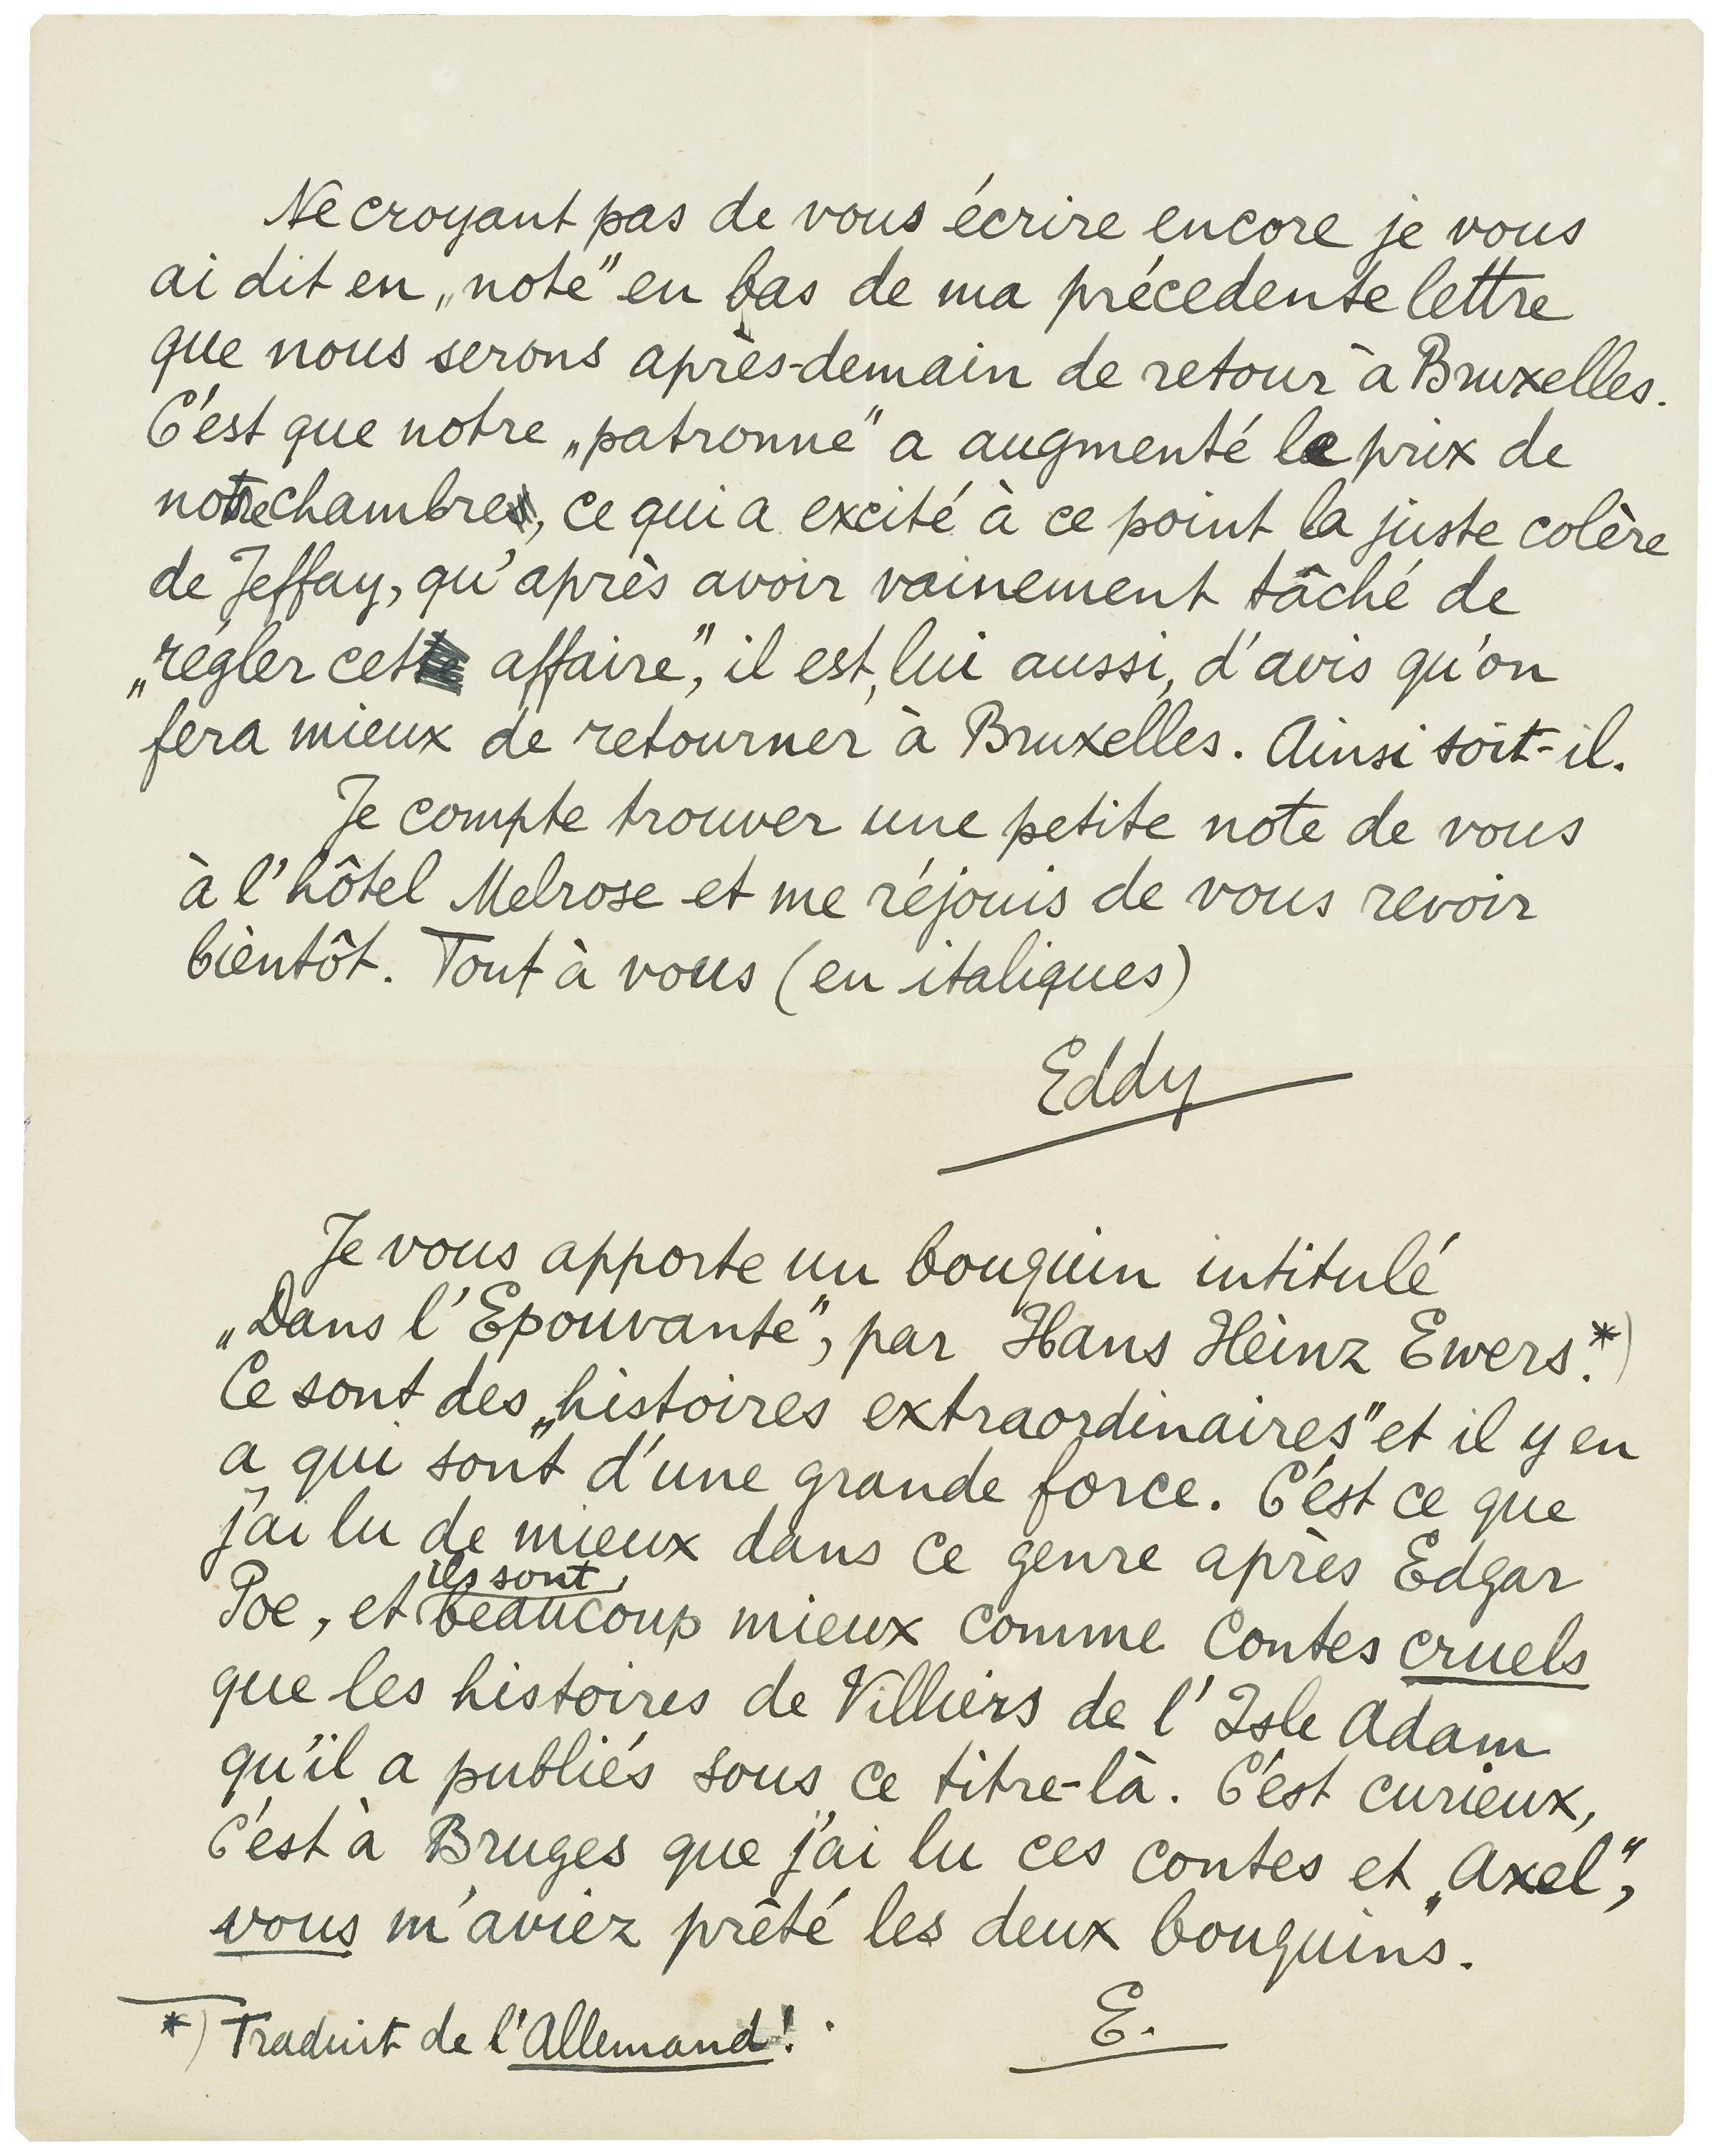 Ne croyant pas de vous écrire encore je vous
ai dit en „note" en bas de ma précedente lettre
que nous serons après-demain de retour à Bruxelles.
C'est que notre „patronne" a augmenté le prix de
notre chambre, ce qui a excité à ce point la juste colère
de Jeffay, qu'après avoir vainement tâché de
„régler cet affaire", il est, lui aussi, d'avis qu'on
fera mieux de retourner à Bruxelles. Ainsi soit-il.
Je compte trouver une petite note de vous
à l'hôtel Melrose et me réjouis de vous revoir
bientôt. Tout à vous (en italiques)
Eddy
Je vous apporte un bouquin intitulé
„Dans l'Epouvante", par Hans Heinz Ewers.*)
Ce sont des „histoires extraordinaires" et il y en
a qui sont d'une grande force. C'est ce que
j'ai lu de mieux dans ce genre après Edgar
ils sont
Poe, et beaucoup mieux comme Contes cruels
que les histoires de Villiers de l'Isle Adam
qu'il a publiés sous ce titre-là. C'est curieux,
c'est à Bruges que j'ai lu ces contes et „Axel",
vous m'aviez prêté les deux bouquins.
E.
*) Traduit de l'Allemand!